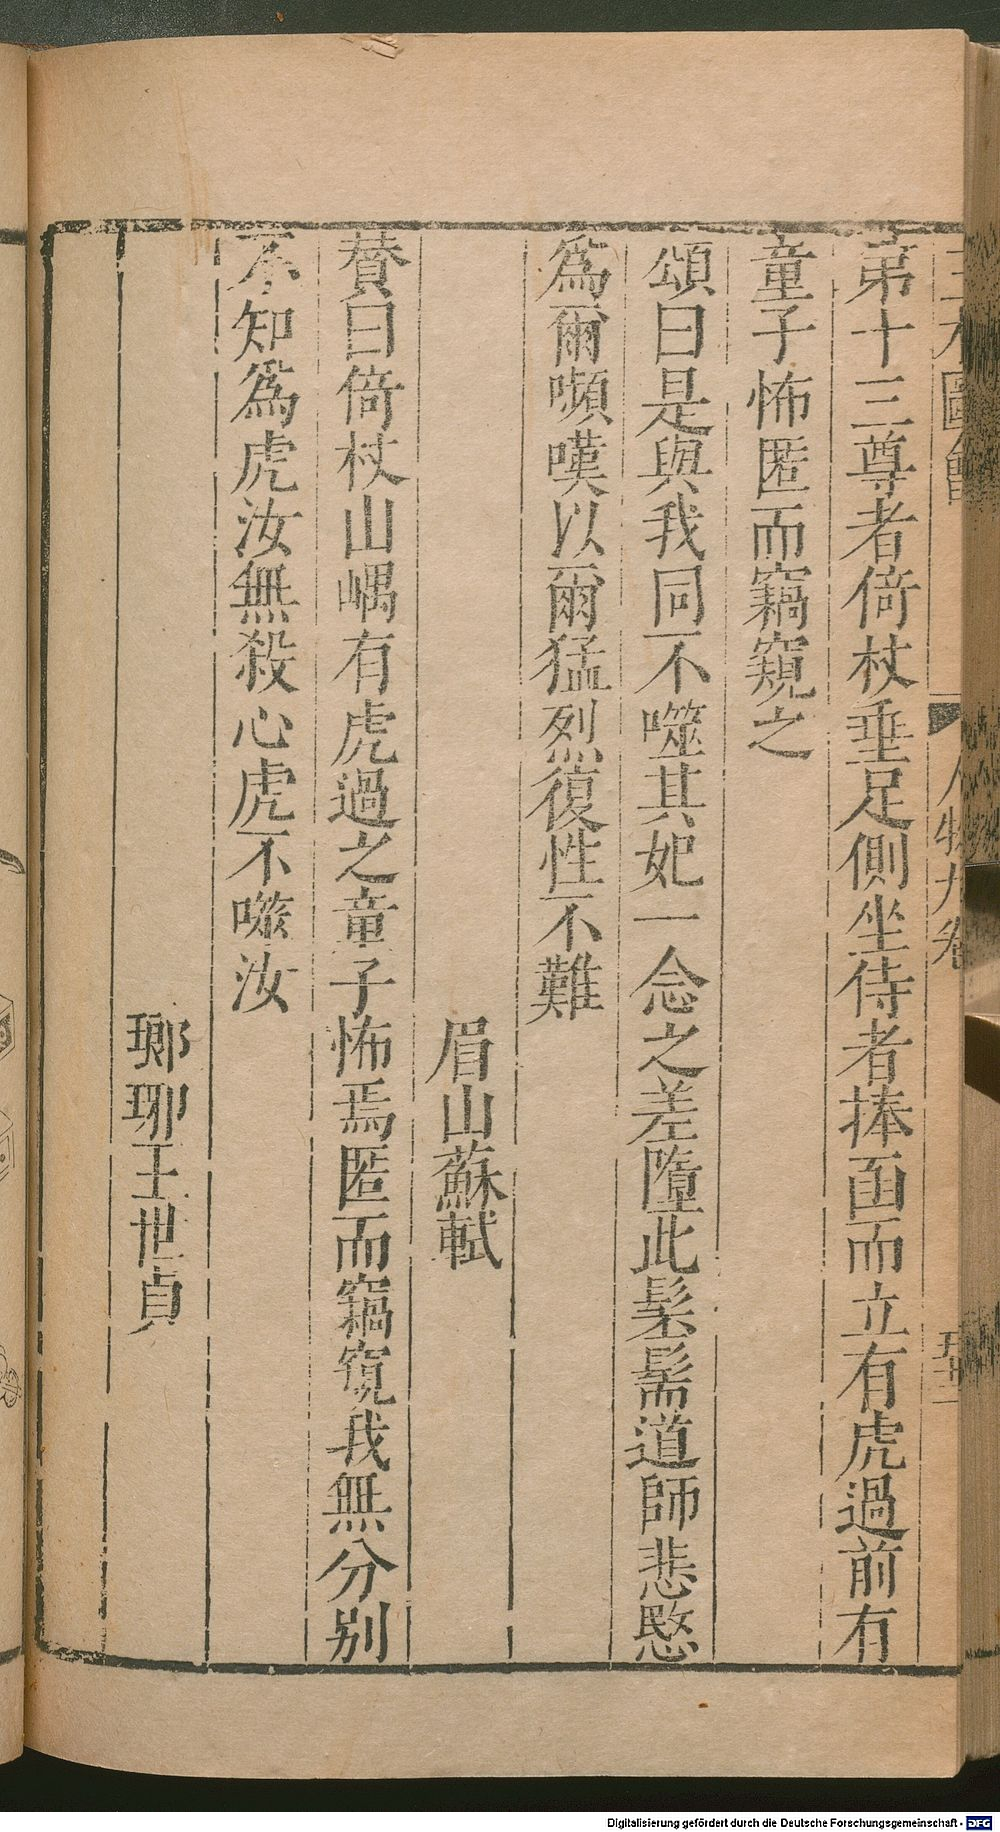 三才圖會 人物九卷 五十二
第十三尊者倚杖垂足側坐侍者捧函而立有虎過前有
童子怖匿而竊窺之
頌曰是與我同不噬其妃一念之差墮此髬髵道師悲愍
為爾嚬嘆以爾猛烈復性不難
眉山蘇軾
賛曰倚杖山嵎有虎過之童子怖焉匿而竊窺我無分别
不知為虎汝無殺心虎不噬汝
瑯琊王世貞
Digitalisierung gefördert durch die Deutsche Forschungsgemeinschaft - DFG